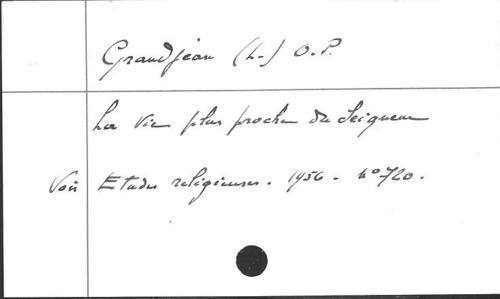 Grandjean (L.) O.P.
La vie plus proche du Seigneur
Voir Etudes religieuses. 1956. N° 720.